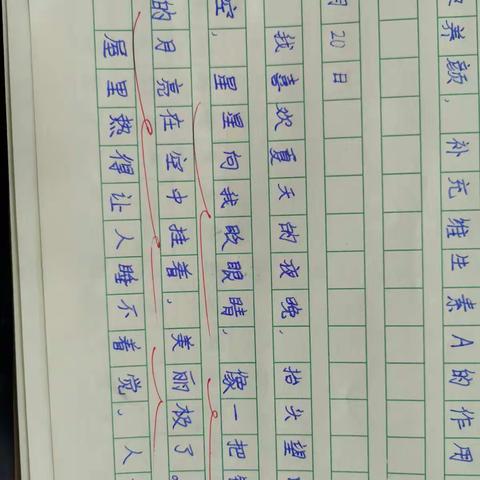 养颜，补充维生素A的作用
月20日
我喜欢夏天的夜晚，抬头望
空，星星向我眨眼睛，像一把
的月亮在空中挂着，美丽极了。
屋里热得让人睡不着觉，人